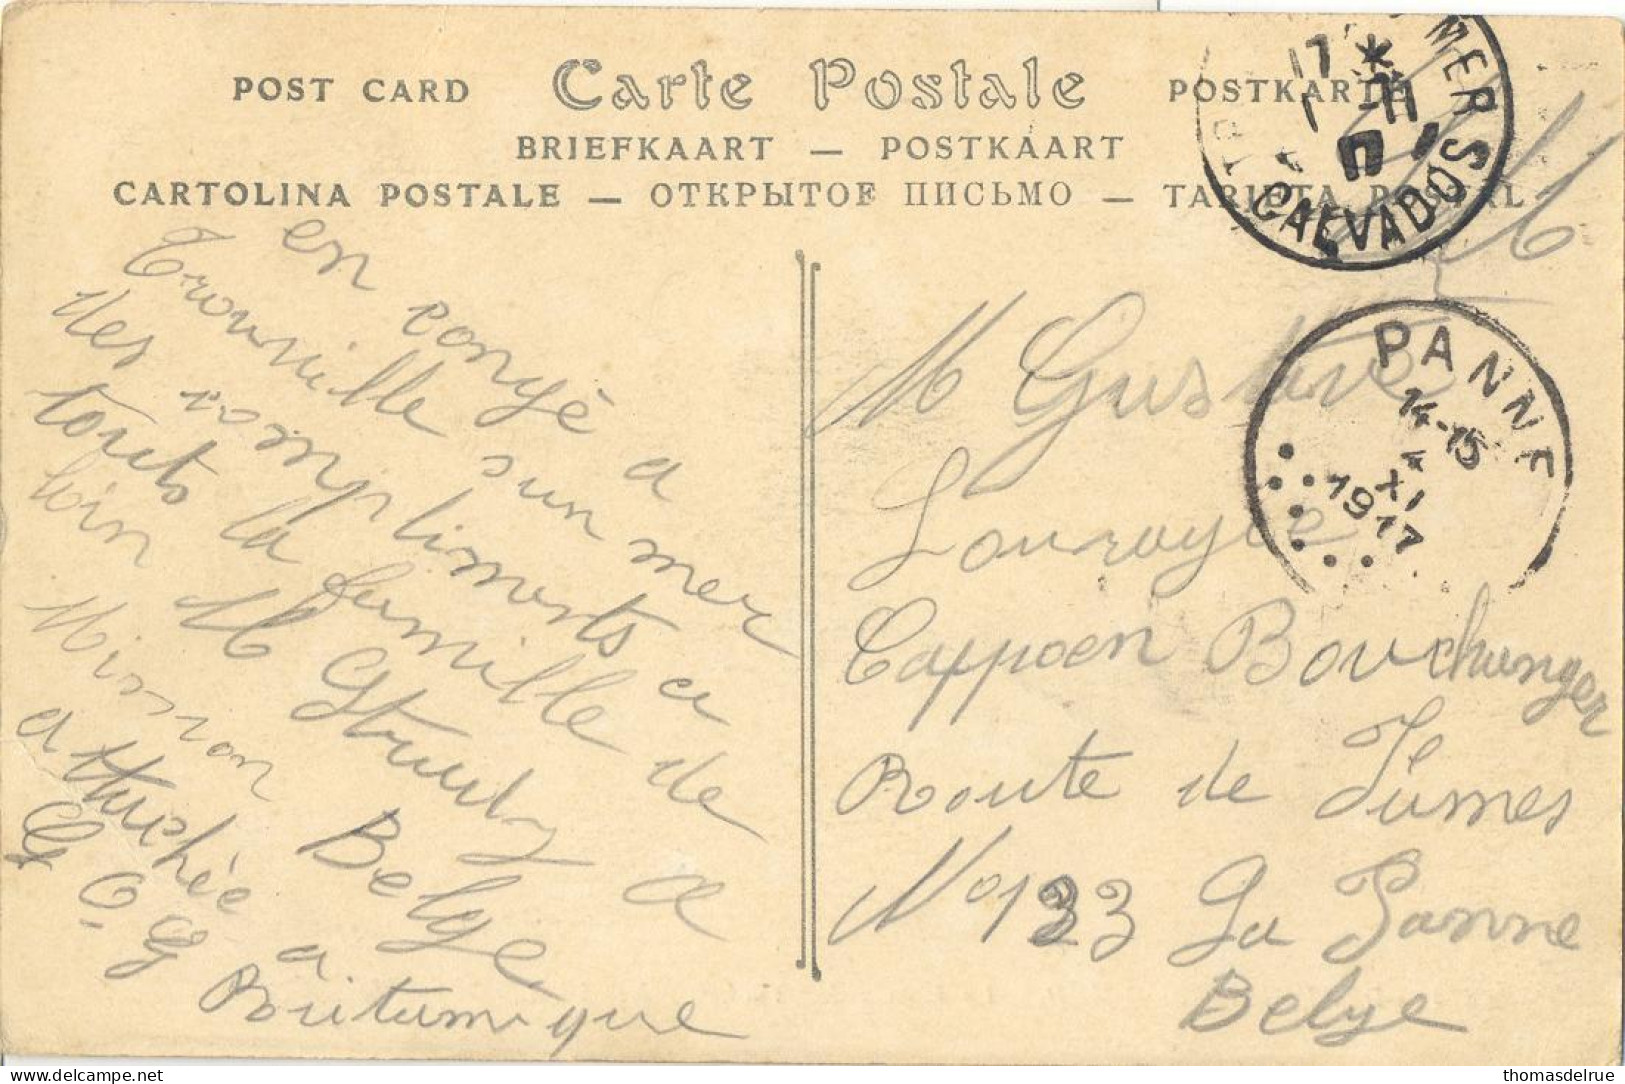 POST CARD Carte Postale POSTKARTE
BRIEFKAART — POSTKAART
CARTOLINA POSTALE — ОТКРЫТОЕ ПИСЬМО — TARJETA POSTAL
MER
CALVADOS
17 *
1 -11
17
PANNE
14-15
4
XI
1917
en congè a
Trouville sur mer
des compliments a
touts la famille de
loin M
Mission Belge
attachée a
G. Q. G
Britanique
M Gustave
Cappoen Bouchanger
Route de Furnes
N° 133 La Panne
Belge
thomasdelrue